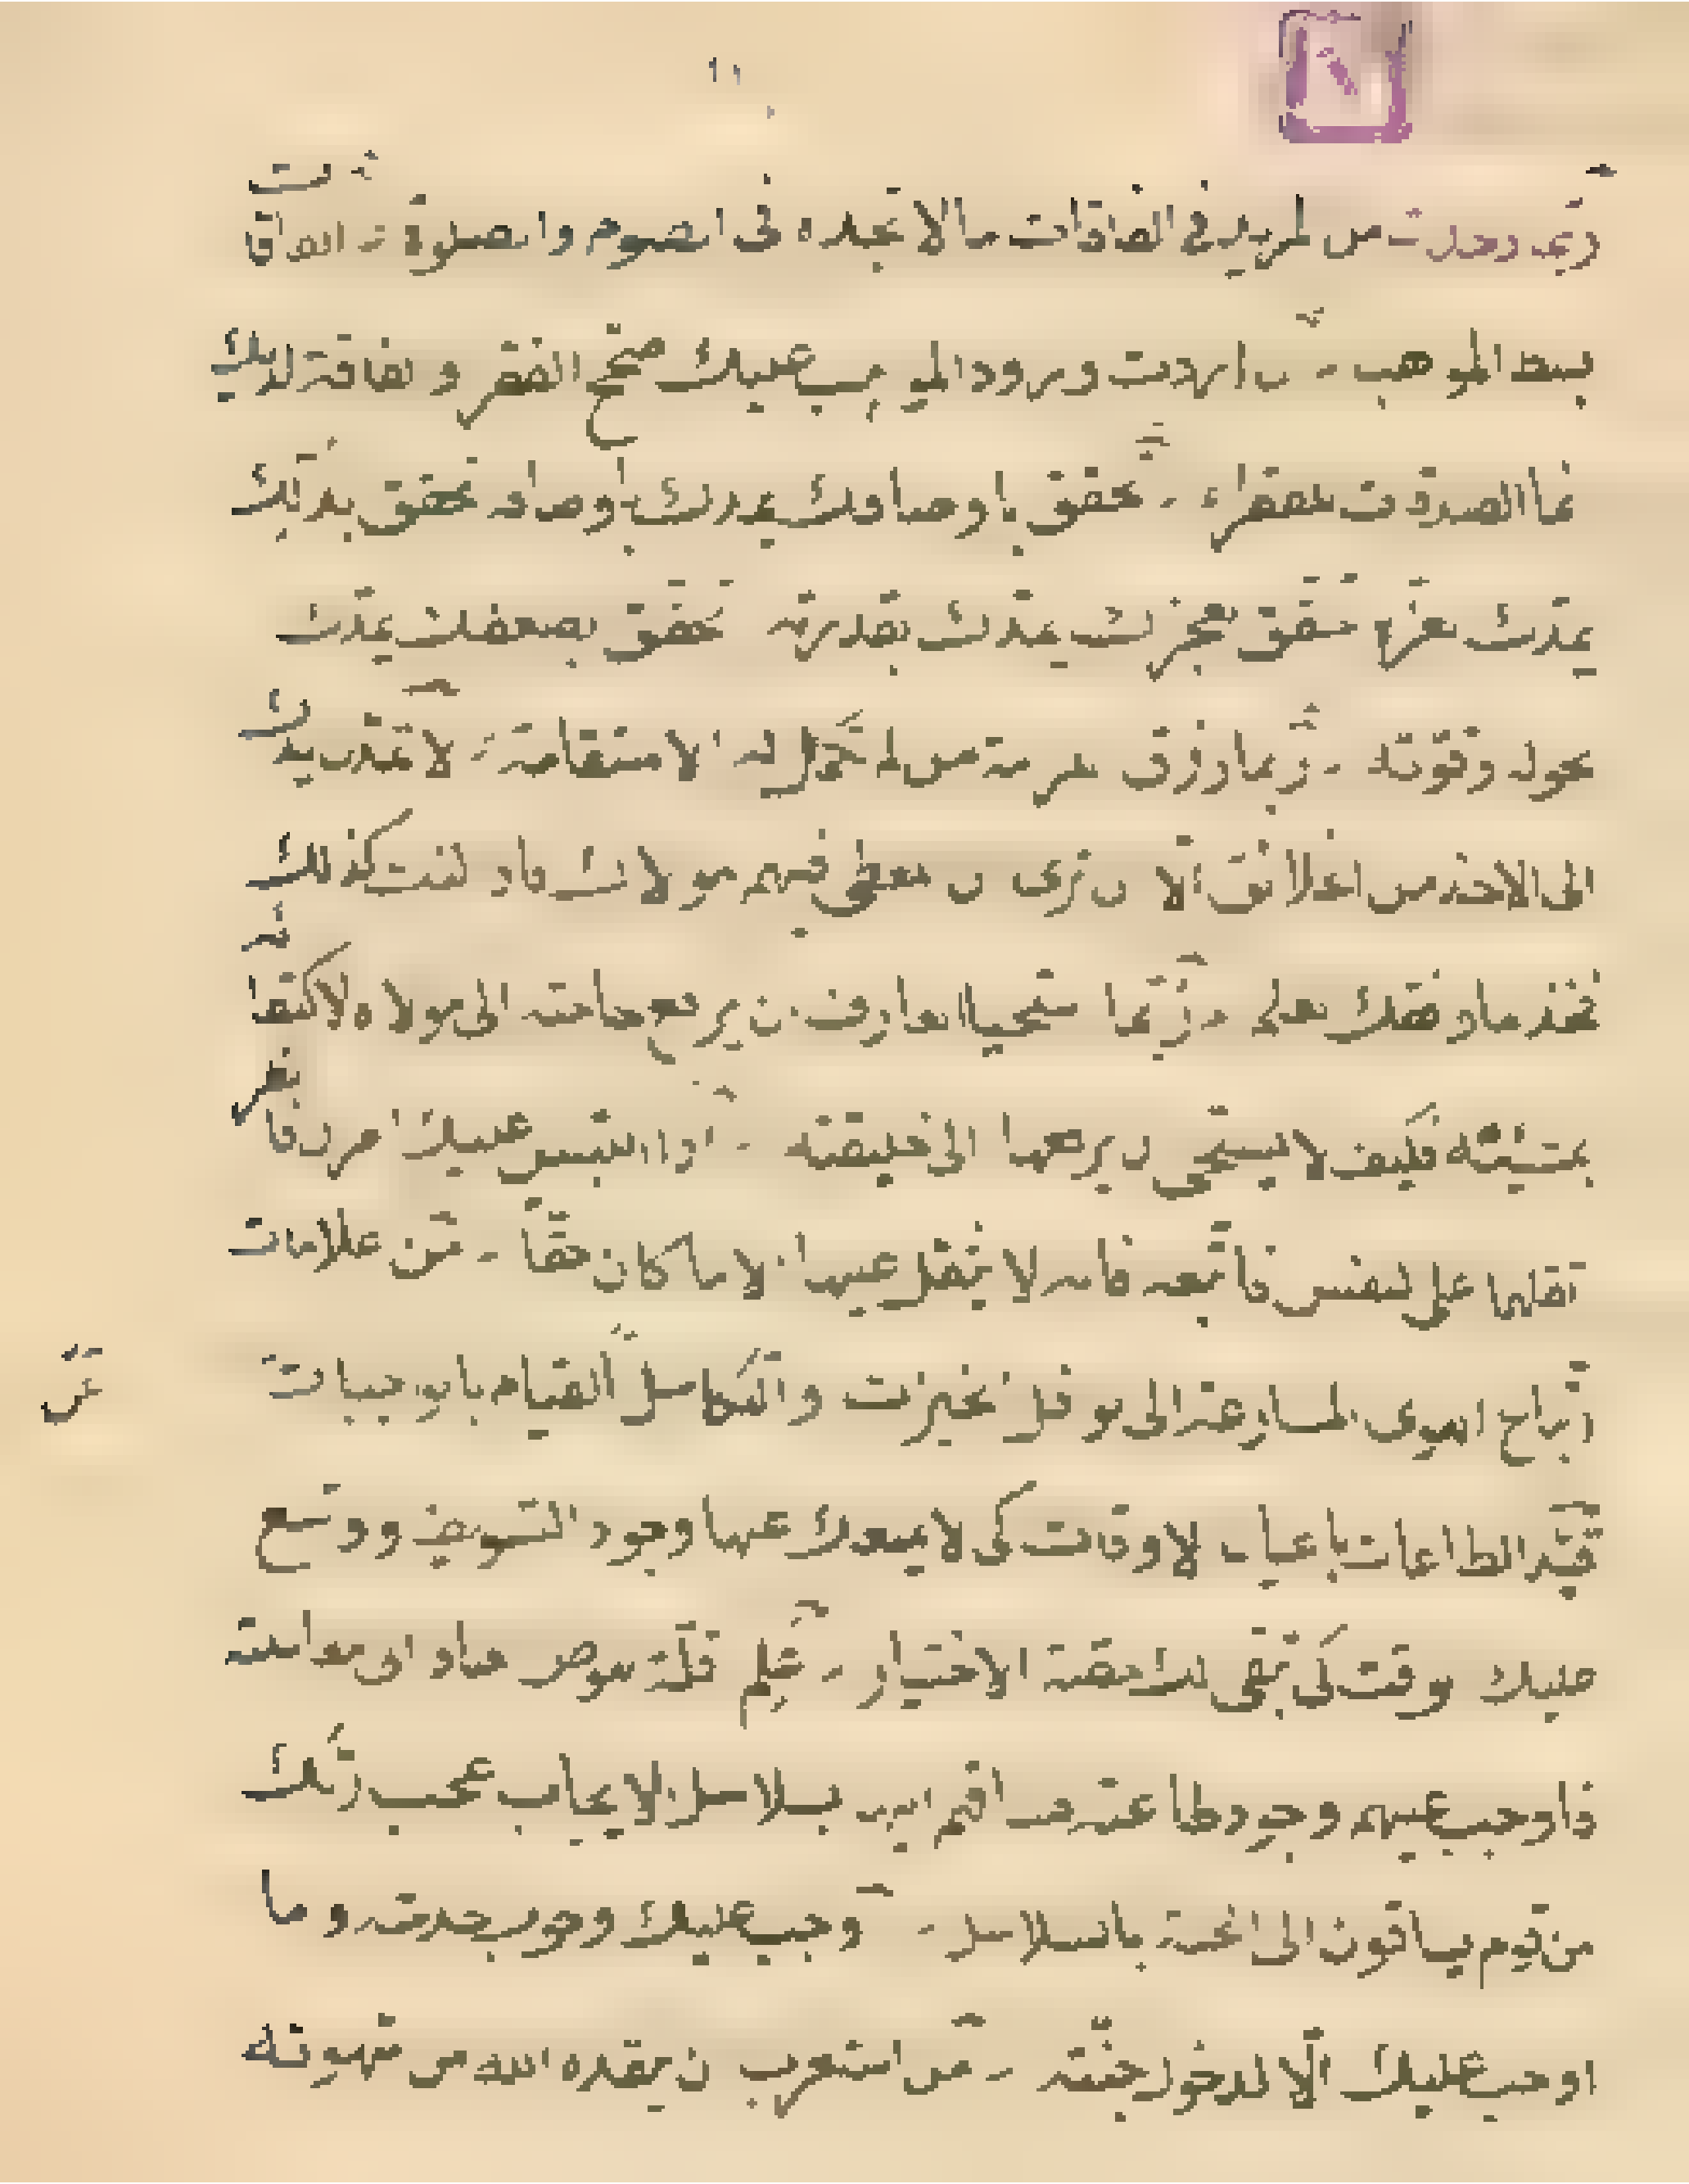 ربما وجدت من المزيد في الفاقات ما لا تجده في الصوم والصلوة الفاقات
بسط المواهب ان اردت ورود المواهب عليك صحح الفقر والفاقة لديك
انما الصدقات للفقراء تحقق باوصافك يمدك باوصافه تحقق بذلك
يمدك بعزه تحقق بعجزك يمدك بقدرته تحقق بضعفك يمدك
بحوله وقوته ربما رزق الكرامة من لم تكمل له الاستقامة لا تمدن يدك
الى الاخذ من الخلائق الا ان ترى ان المعطي فيهم مولاك فاذا كنت كذلك
فخذ ما وافقك العلم ربما استحيا العارف ان يرفع حاجته الى مولاه لاكتفائه
بمشيئته فكيف لا يستحي ان يرفعها الى خليقته اذا التبس عليك امران فانظر
اثقلهما على النفس فاتبعه فانه لا يثقل عليها الا ما كان حقا من علامات
اتباع الهوى المسارعة الى نوافل الخيرات والتكاسل عن القيام بالواجبات
قيد الطاعات باعيان الاوقات كي لا يمنعك عنها وجود التسويف ووسع
عليك الوقت كي تبقى لك حصة الاختيار علم قلة نهوض العباد الى معاملته
فاوجب عليهم وجود طاعته فساقهم اليه بسلاسل الايجاب عجب ربك
من قوم يساقون الى الجنة بالسلاسل اوجب عليك وجود خدمته وما
اوجب عليك الا لدخول جنته من استغرب ان ينقذه الله من شهوته